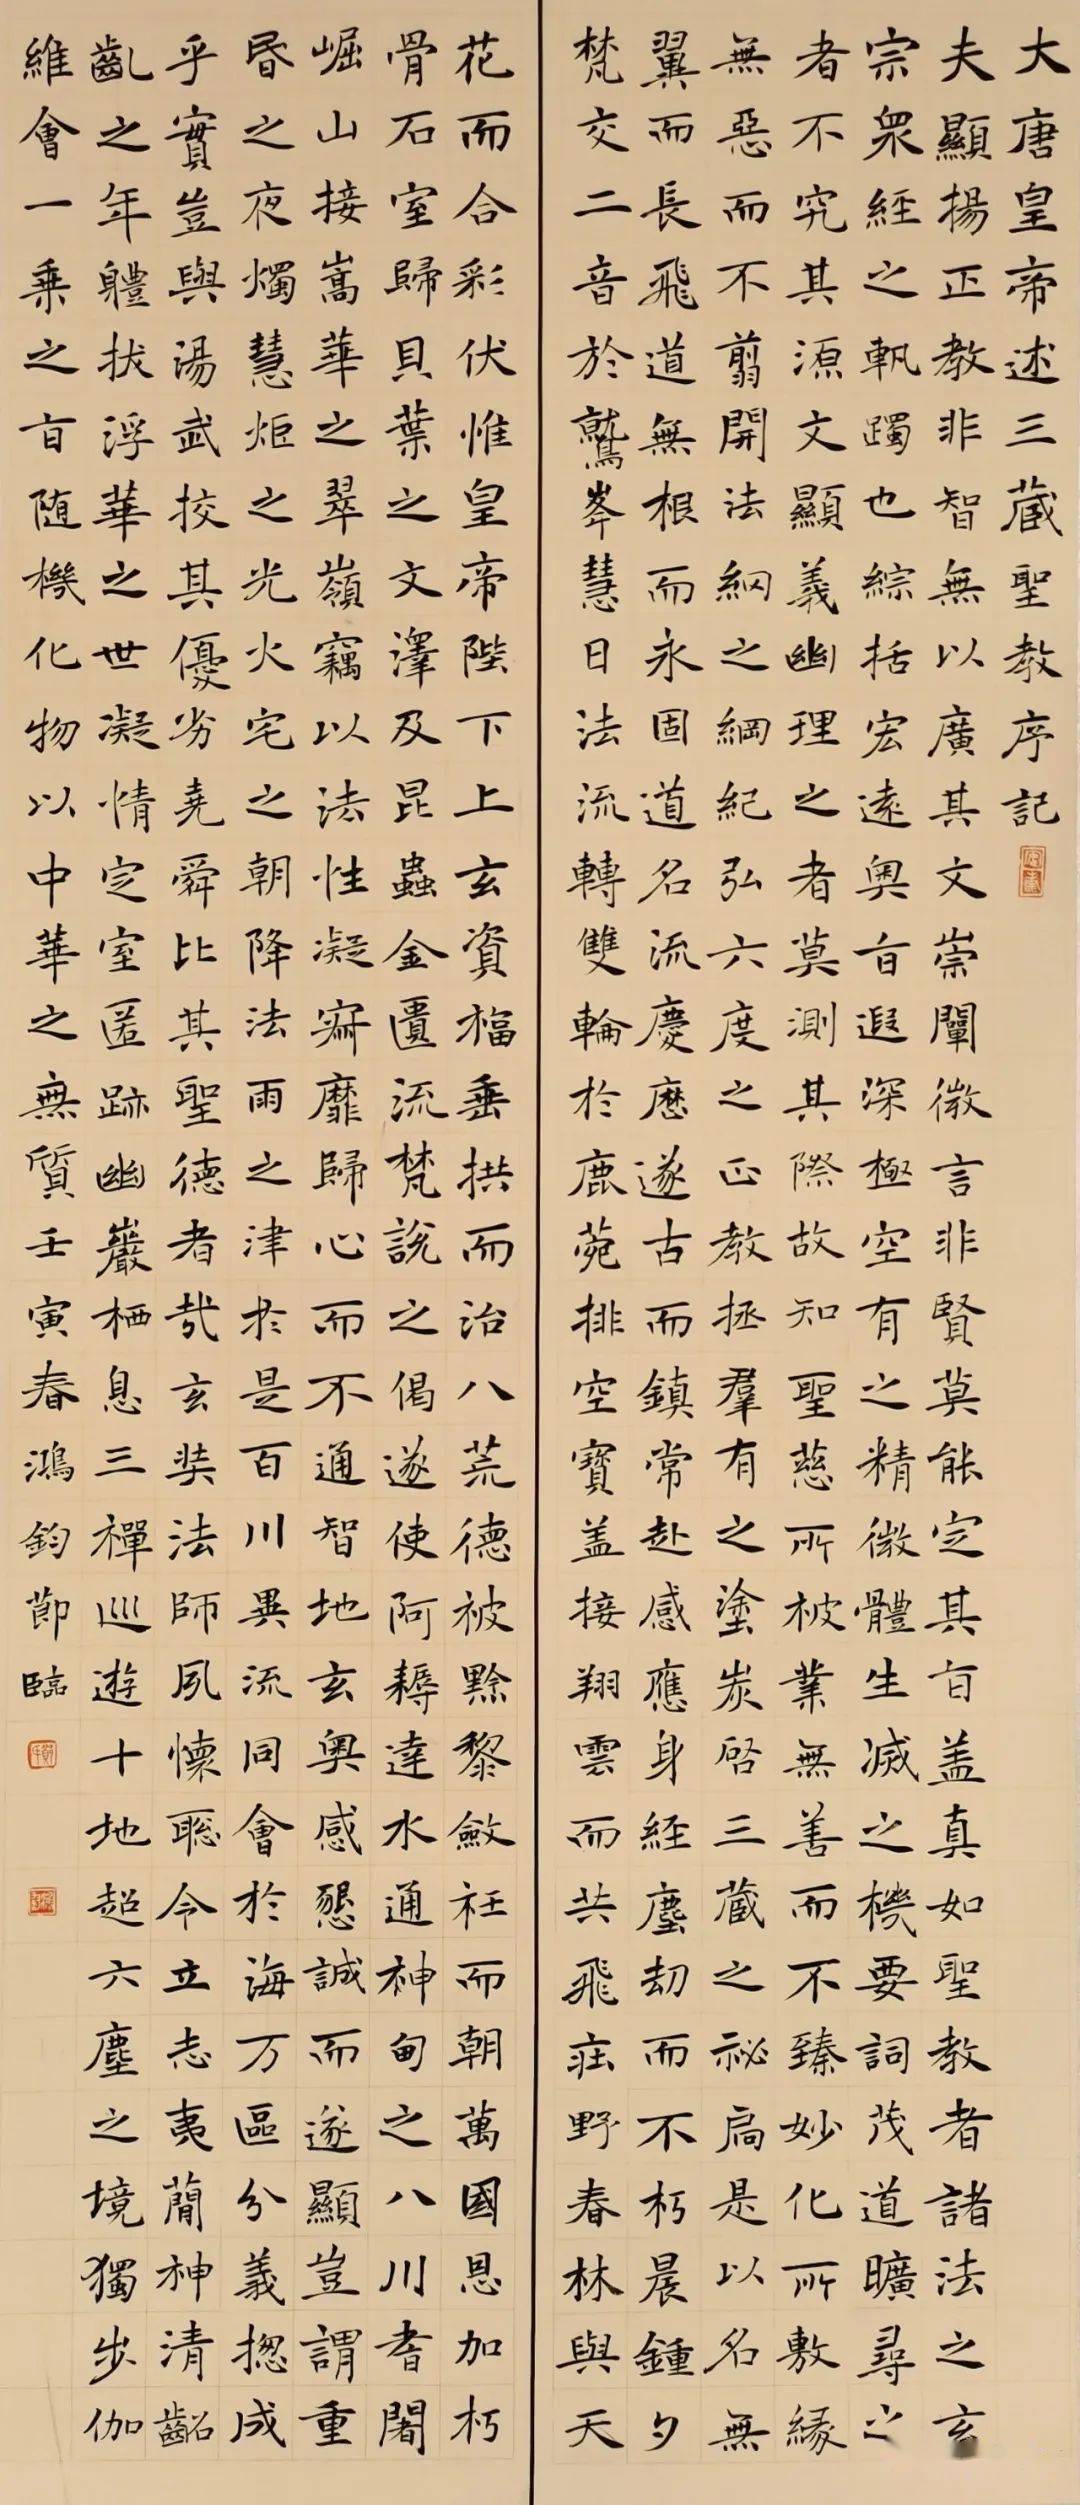 大唐皇帝述三藏聖教序記
夫顯揚正教非智無以廣其文崇闡微言非賢莫能定其旨盖真如聖教者諸法之玄
宗衆經之軌躅也綜括宏遠奥旨遐深極空有之精微體生滅之機要詞茂道曠尋之
者不究其源文顯義幽理之者莫測其際故知聖慈所被業無善而不臻妙化所敷緣
無惡而不翦開法網之綱紀弘六度之正教拯羣有之塗炭啓三藏之祕扃是以名無
翼而長飛道無根而永固道名流慶歷遂古而鎮常赴感應身經塵劫而不朽晨鍾夕
梵交二音於鷲峯慧日法流轉雙輪於鹿菀排空寶盖接翔雲而共飛莊野春林與天
花而合彩伏惟皇帝陛下上玄資福垂拱而治八荒德被黔黎斂衽而朝萬國恩加朽
骨石室歸貝葉之文澤及昆蟲金匱流梵説之偈遂使阿耨達水通神甸之八川耆闍
崛山接嵩華之翠嶺竊以法性凝寂靡歸心而不通智地玄奥感懇誠而遂顯豈謂重
昏之夜燭慧炬之光火宅之朝降法雨之津於是百川異流同會於海万區分義揔成
乎實豈與湯武挍其優劣堯舜比其聖德者哉玄奘法師夙懷聡令立志夷簡神清齠
齓之年體拔浮華之世凝情定室匿跡幽巖栖息三禪巡遊十地超六塵之境獨步伽
維會一乘之旨随機化物以中華之無質壬寅春鴻鈞節臨